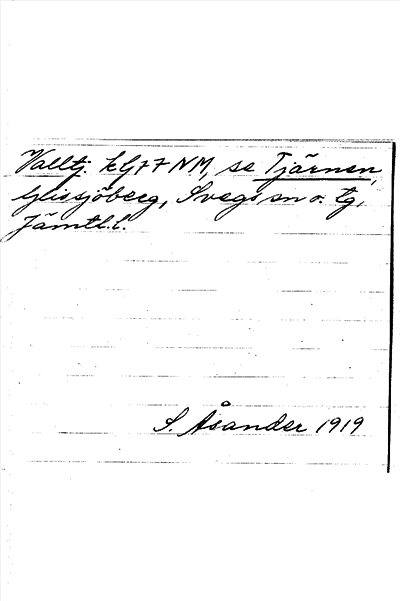 Valltj. kG77NM, se Tjärnen,
Glissjöberg, Svegs sn o. tg,
Jämtl. l.
S. Åsander 1919